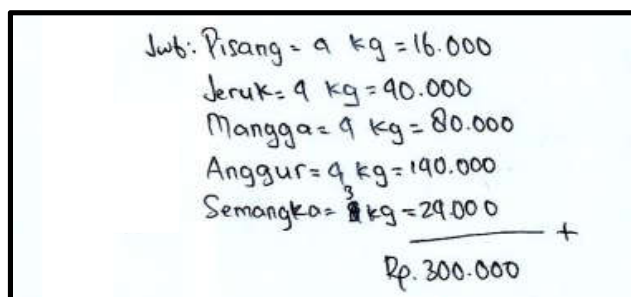 Jwb: Pisang = 4 kg = 16.000
Jeruk = 4 kg = 40.000
Mangga = 4 kg = 80.000
Anggur = 4 kg = 140.000
Semangka = 3 kg = 24.000
+
Rp. 300.000